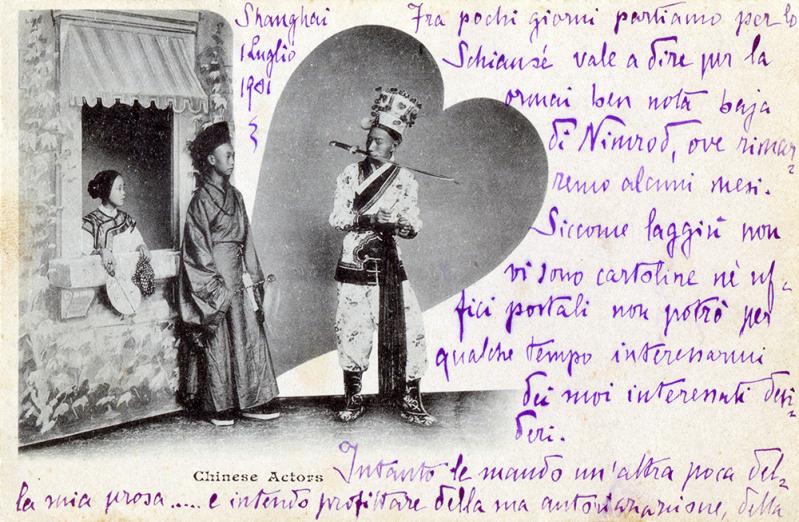 Shanghai
1 Luglio
1901
Fra pochi giorni partiamo per lo
Schiansé vale a dire per la
ormai ben nota baja
di Nimrod, ove rimar-
remo alcuni mesi.
Siccome laggiù non
vi sono cartoline nè uf-
fici postali non potrò per
qualche tempo interessarmi
dei suoi interessati desi-
deri.
Chinese Actors
Intanto le mando un'altra poca del-
la mia prosa..... e intendo profittare della sua autorizzazione, della